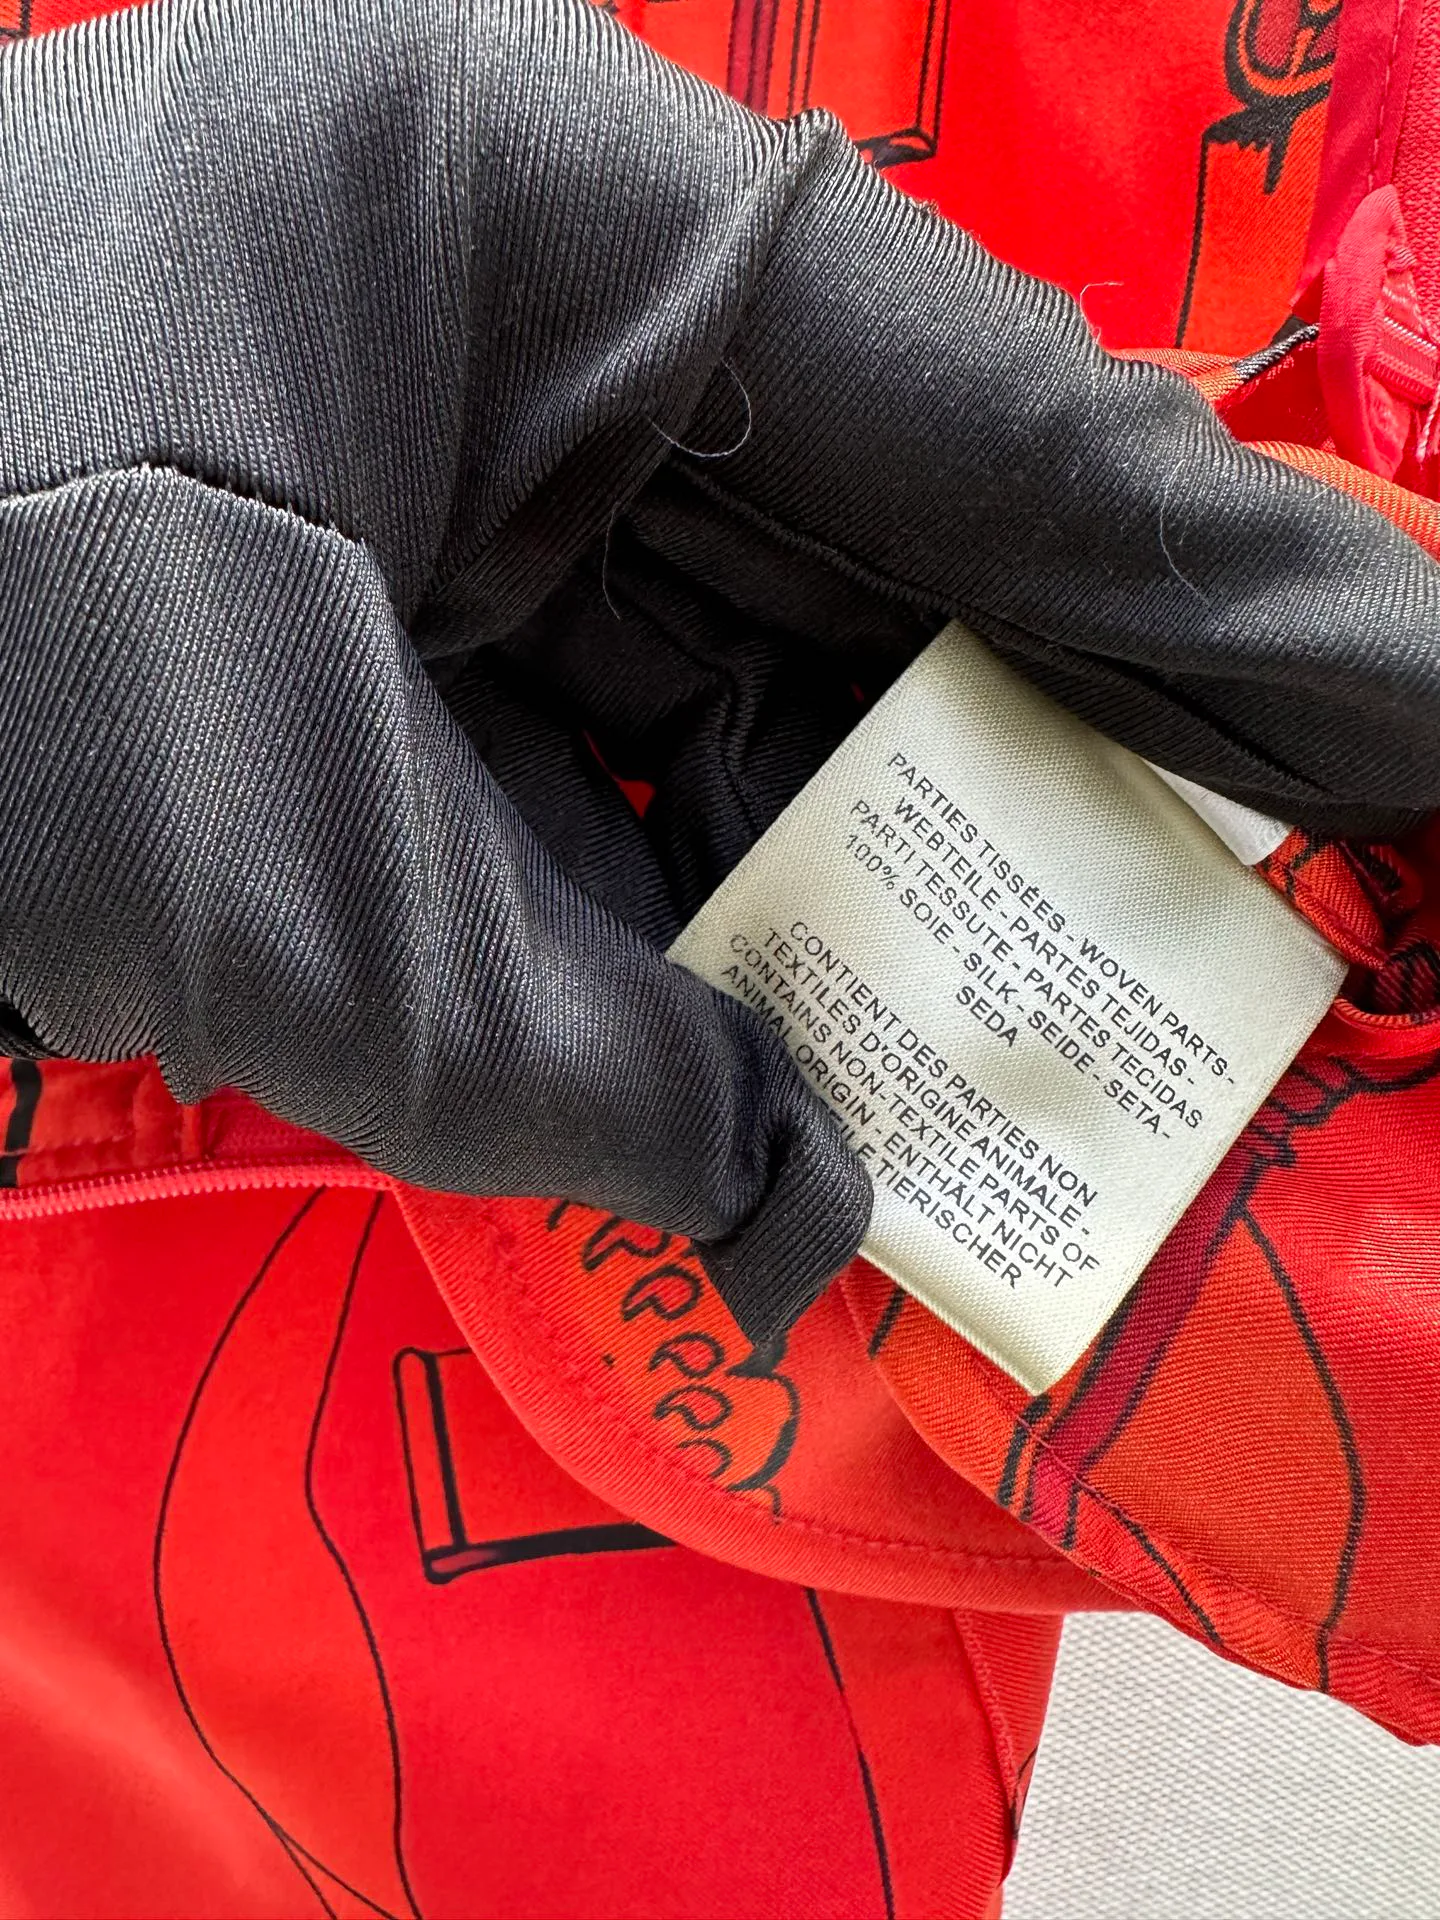 PARTIES TISSÉES - WOVEN PARTS -
WEBTEILE - PARTES TEJIDAS -
PARTI TESSUTE - PARTES TECIDAS
100% SOIE - SILK - SEIDE - SETA -
SEDA
CONTIENT DES PARTIES NON
TEXTILES D'ORIGINE ANIMALE -
CONTAINS NON-TEXTILE PARTS OF
ANIMAL ORIGIN - ENTHÄLT NICHT
TIERISCHER